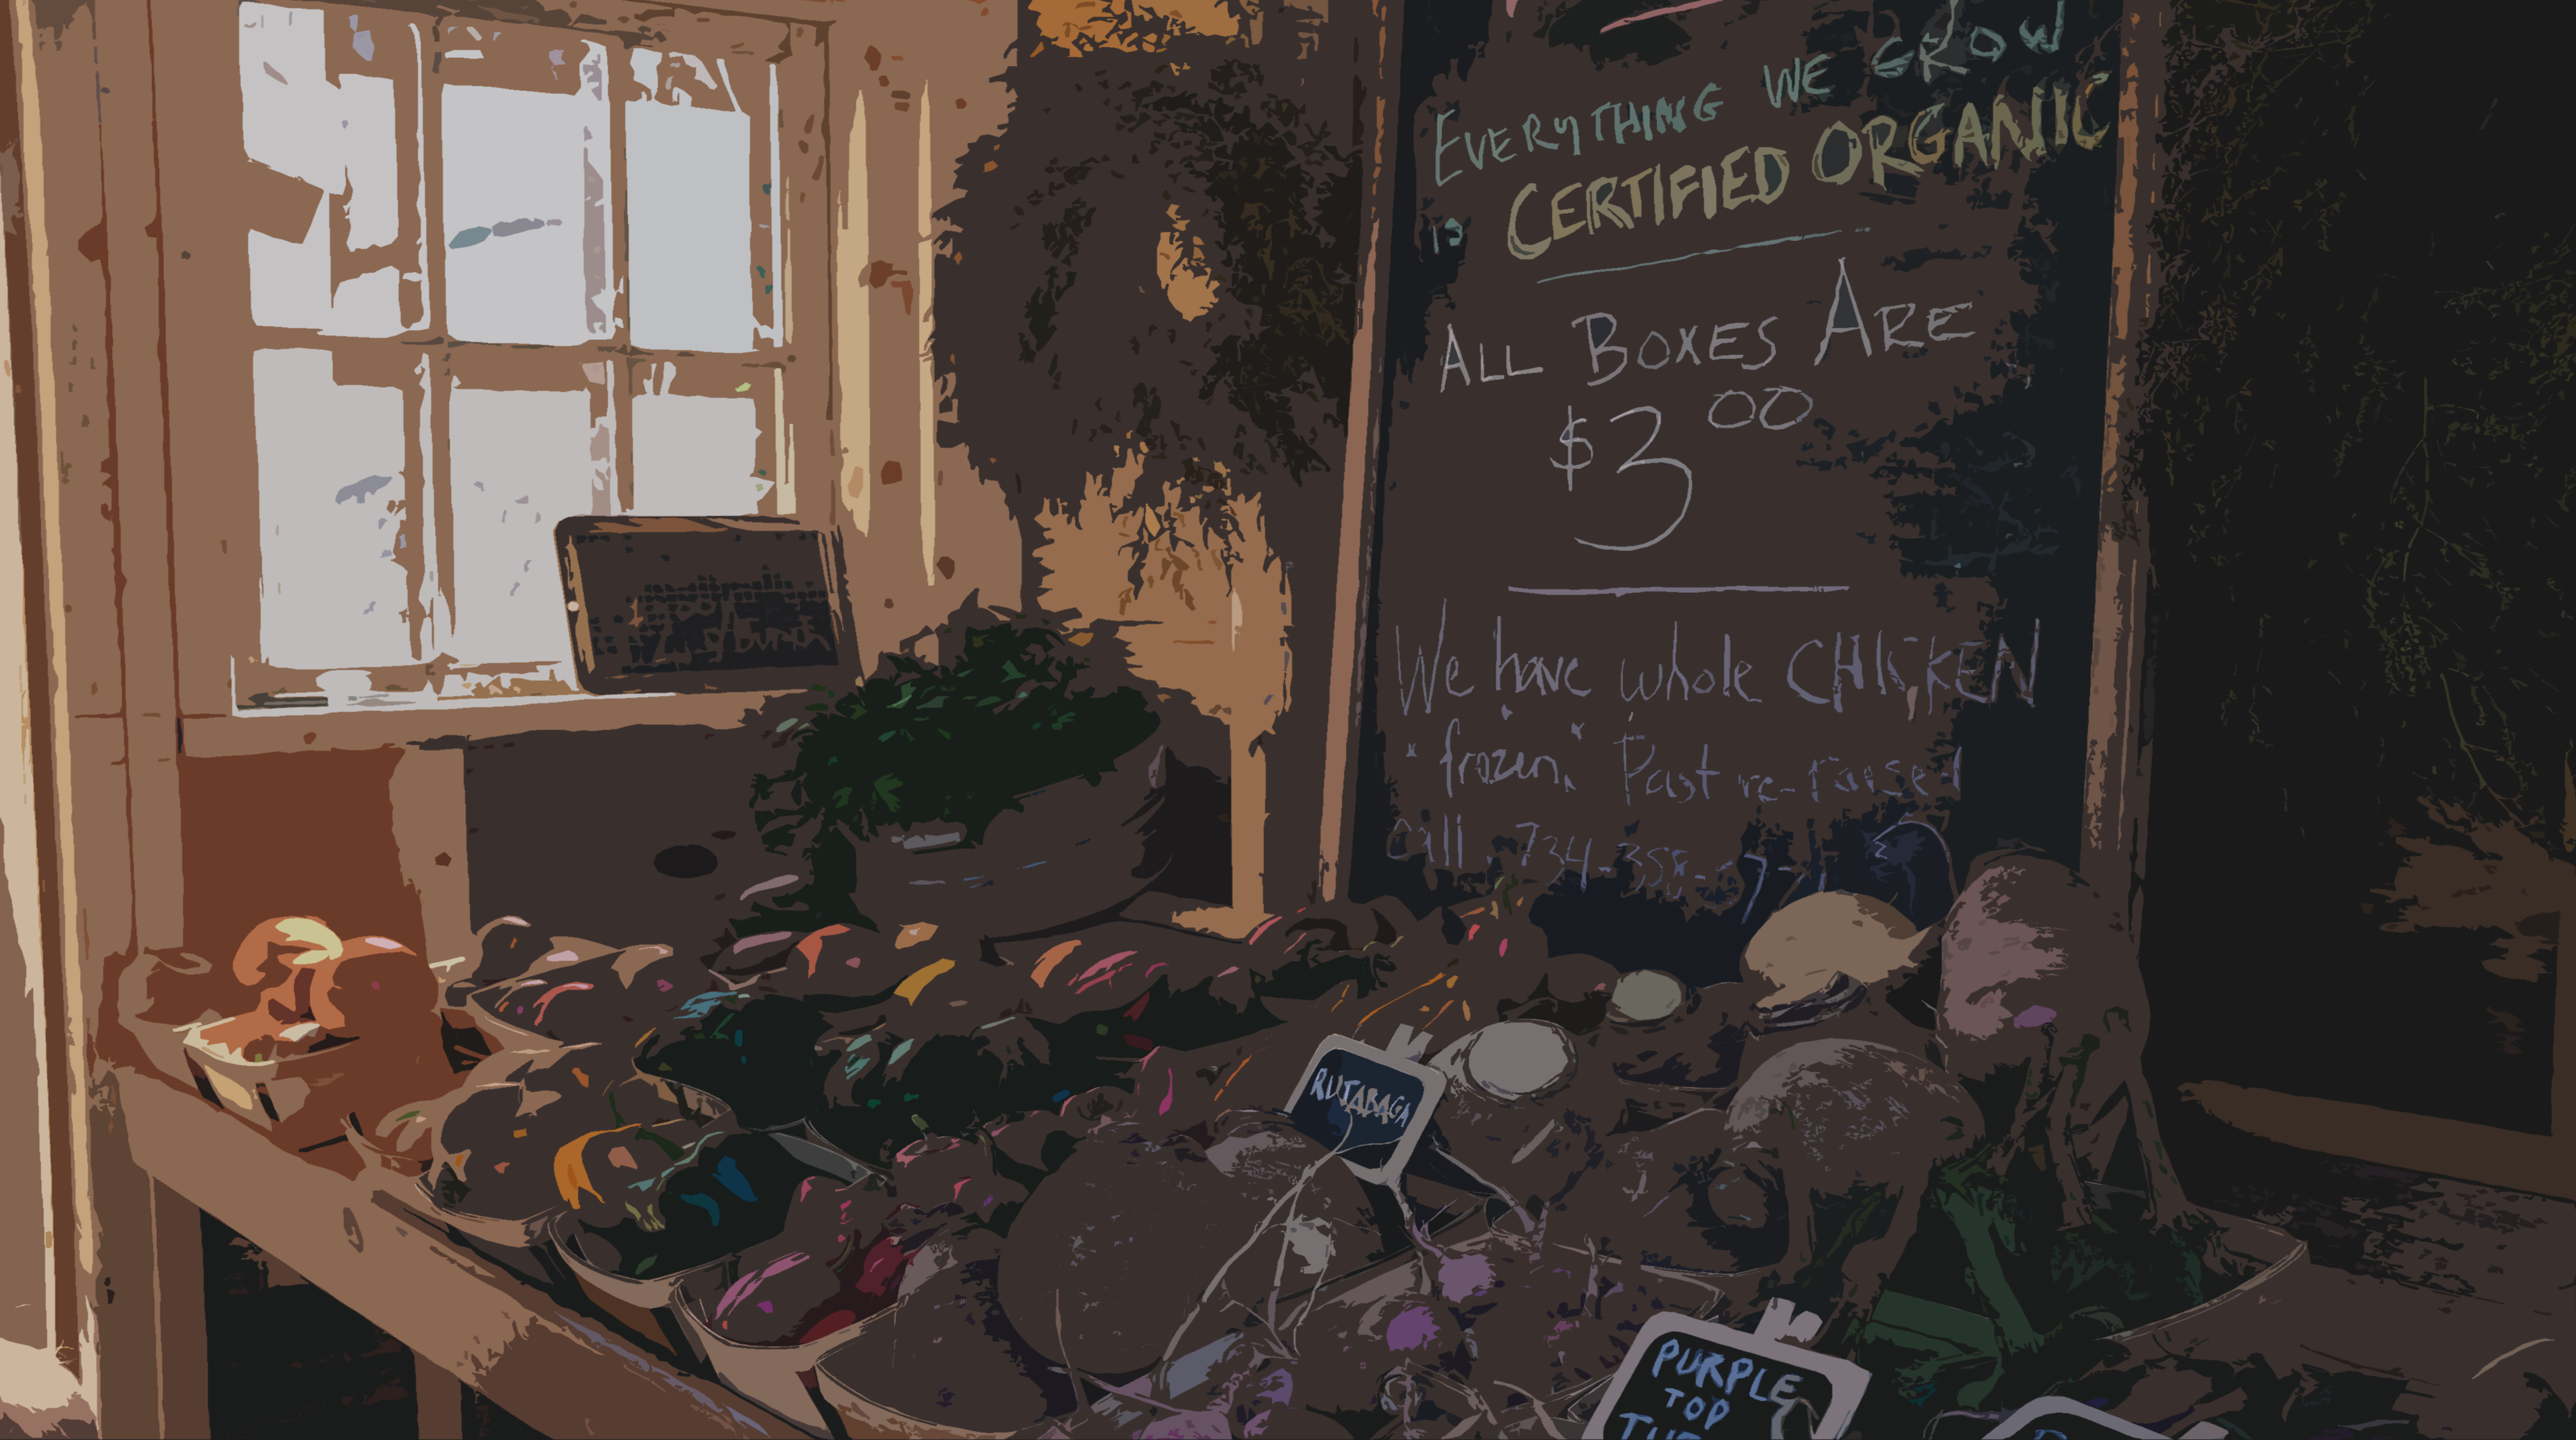 EVERYTHING WE GROW
is CERTIFIED ORGANIC
ALL BOXES ARE
$3 00
We have whole CHICKEN
"frozen" Pasture-raised
Call
RUTABAGA
PURPLE
TOP